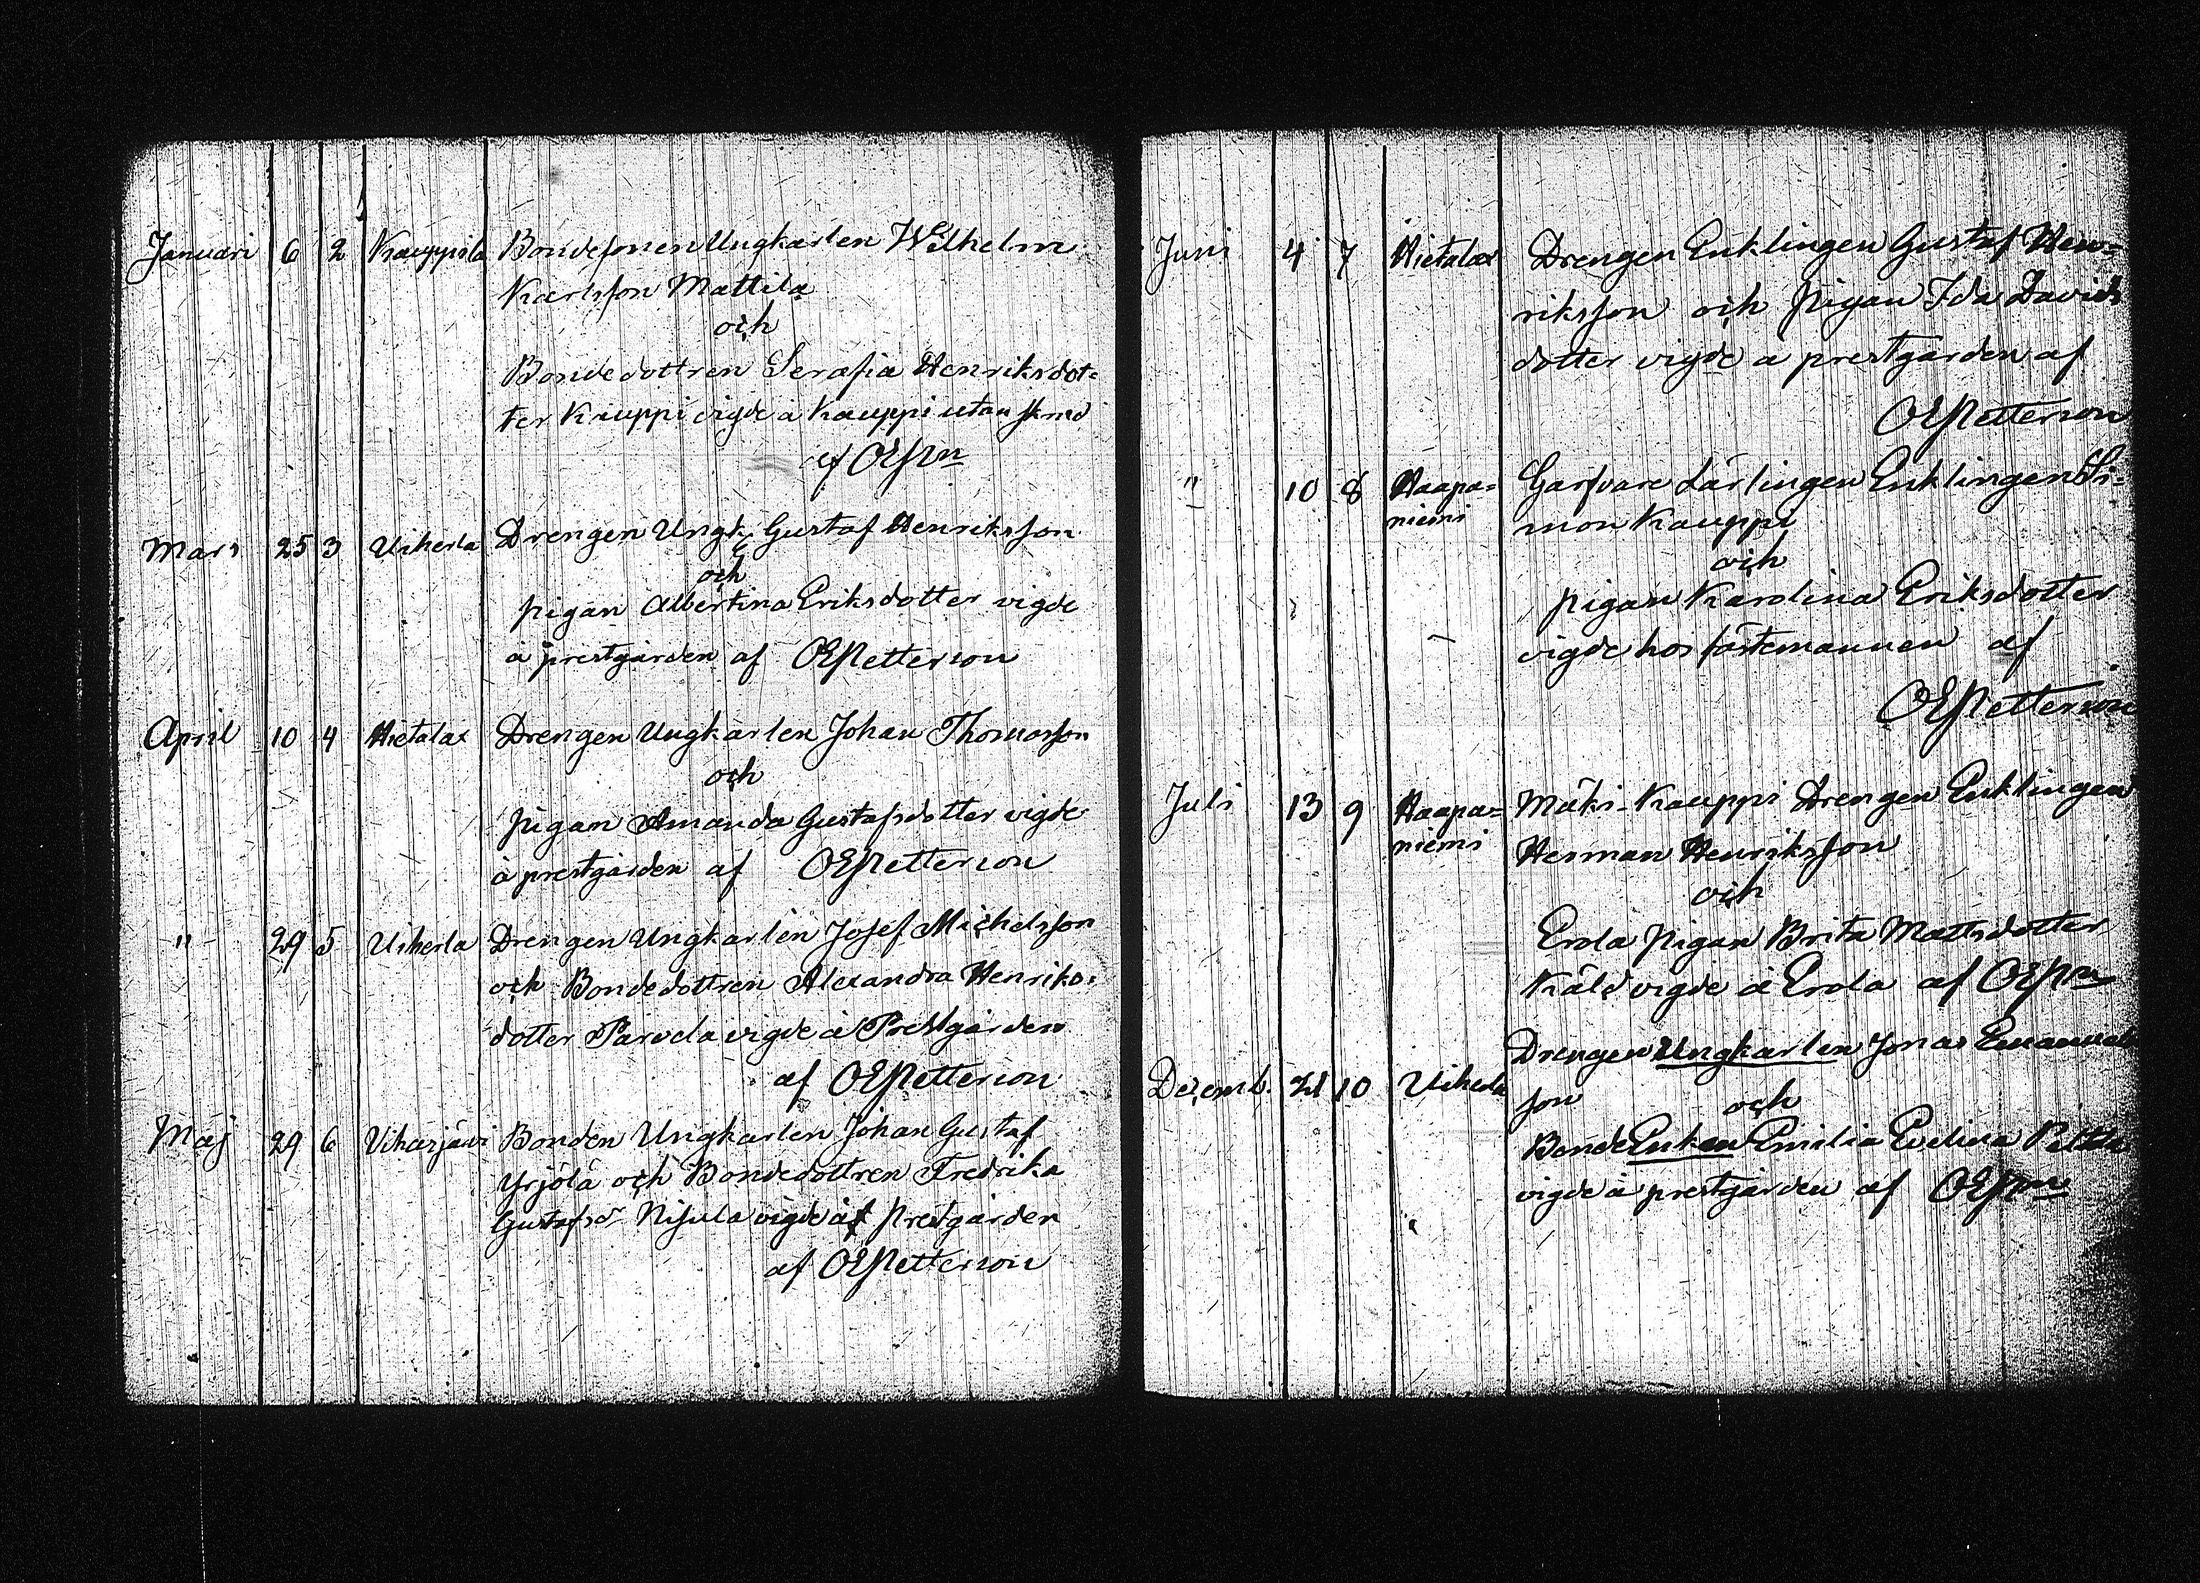 Januari 6 2 Kauppila Bondesonen Ungkarlen Wilhelm
Karlsson Mattila
och
Bondedottren Serafia Henriksdot-
ter Kauppi vigde å Kauppi utan
af OEPsn
Mars 25 3 Uiherla Drengen Ungk. Gustaf Henriksson
och
pigan Albertina Eriksdotter vigde
å prestgården af OEPetterson
April 10 4 Hietalax Drengen Ungkarlen Johan Thomasson
och
pigan Amanda Gustafsdotter vigde
å prestgården af OEPetterson
" 29 5 Uiherla Drengen Ungkarlen Josef Michelsson
och Bondedottren Alexandra Henriks-
dotter Parvela vigde å Prestgården
af OEPetterson
Maj 29 6 Viharjärvi Bonden Ungkarlen Johan Gustaf
Yrjölä och Bondedottren Fredrika
Gustafsd. Nisula vigde å prestgården
af OEPetterson
Juni 4 7 Hietalax Drengen Enklingen Gustaf Hen-
riksson och pigan Ida Davids
dotter vigde å prestgården af
OEPetterson
" 10 8 Haapa- Garfvare Lärlingen Enklingen Si-
niemi mon Kauppi
och
pigan Karolina Eriksdotter
vigde hos fästemannen af
OEPetterson
Juli 13 9 Haapa- Mäki-Kauppi Drengen Enklingen
niemi Herman Henriksson
och
Erola pigan Brita Mattsdotter
Käld vigde å Erola af OEPsn
Drengen Ungkarlen Jonas Emanuels
Decemb. 21 10 Uiherla son och
Bonde Enkan Emilia Evelina
vigde å prestgården af OEPsn